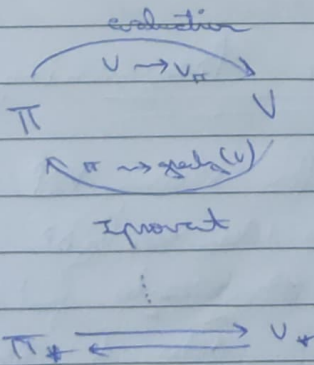 evaluation
V → V_π
π V
π ⇝ greedy(V)
Improvent
⋮
π_* ⇄ V_*